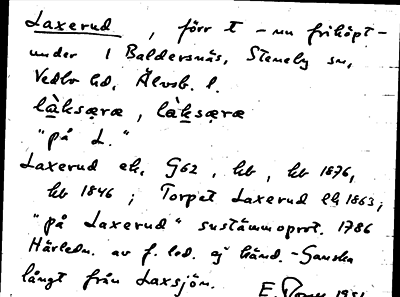 Laxerud, förr t - nu friköpt -
under 1 Baldersnäs, Steneby sn,
Vedbo hd, Älvsb. l.
làksæræ, làksæræ
"på L."
Laxerud ek. G62, kb, kb 1876,
kb 1846; Torpet Laxerud lk 1863;
"på Laxerud" sustämmoprot. 1786
Härledn. av f. led. ej känd. - Ganska
långt från Laxsjön.